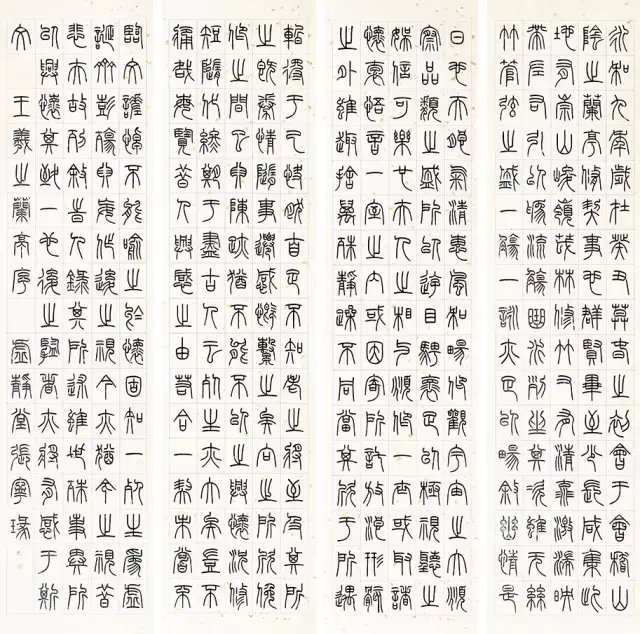 永和九年歲在癸丑暮春之初會于會稽山
陰之蘭亭修禊事也群賢畢至少長咸集此
地有崇山峻嶺茂林修竹又有清流激湍映
帶左右引以為流觴曲水列坐其次雖無絲
竹管弦之盛一觴一詠亦足以暢敘幽情是
日也天朗氣清惠風和暢仰觀宇宙之大俯
察品類之盛所以遊目騁懷足以極視聽之
娛信可樂也夫人之相與俯仰一世或取諸
懷抱悟言一室之內或因寄所託放浪形骸
之外雖趣捨萬殊靜躁不同當其欣于所遇
暫得于己快然自足不知老之將至及其所
之既倦情隨事遷感慨繫之矣向之所欣俛
仰之間已為陳跡猶不能不以之興懷況修
短隨化終期于盡古人云死生亦大矣豈不
痛哉每覽昔人興感之由若合一契未嘗不
臨文嗟悼不能喻之于懷固知一死生為虛
誕齊彭殤為妄作後之視今亦猶今之視昔
悲夫故列敘時人錄其所述雖世殊事異所
以興懷其致一也後之覽者亦將有感于斯
文 王羲之蘭亭序 虛靜堂張寧瑑